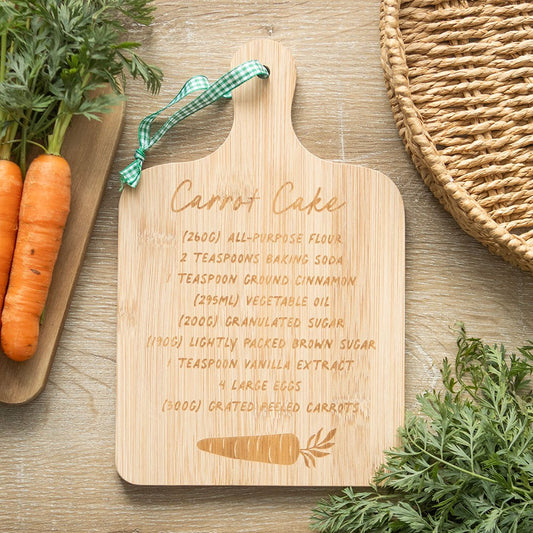 Carrot Cake
(260G) ALL-PURPOSE FLOUR
2 TEASPOONS BAKING SODA
1 TEASPOON GROUND CINNAMON
(295ML) VEGETABLE OIL
(200G) GRANULATED SUGAR
(190G) LIGHTLY PACKED BROWN SUGAR
1 TEASPOON VANILLA EXTRACT
4 LARGE EGGS
(300G) GRATED PEELED CARROTS